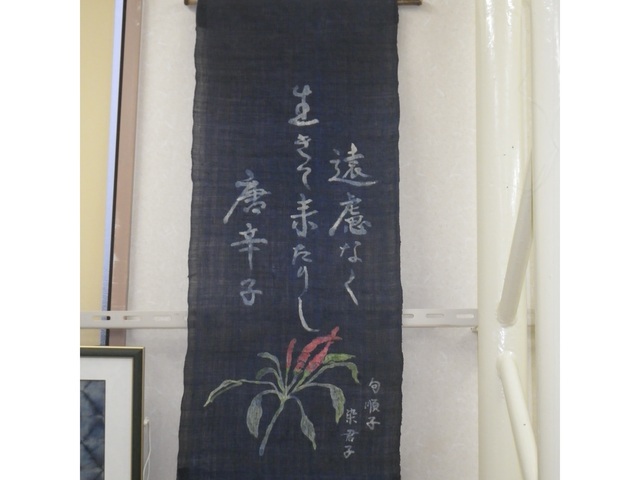 遠慮なく
生きて来たりし
唐辛子
句順子
染君子